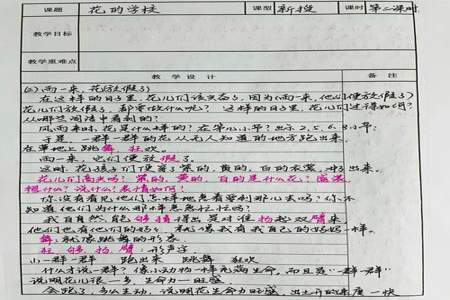 课题 花的学校 课型 新授 课时 第二课时
教学目标
教学重难点
教学设计 备注
(二)雨一来,花放假了
在这样的日子里,花儿们该关着了,因为(雨一来,他们便放假了)
花儿们放假了,都 什么呢? 这样的日子里,花儿们过得如何?
从哪些词语中看到的?
风雨来时,花是什么样的?在第几小节?出示2、5、6、 小节:
于是,一群一群的花从无人知道的地方跑出来,
在草地上跳舞、狂欢。
雨一来,它们便放假了。
这时,花孩子们便穿了紫的、黄的、白的衣裳,冲了出来。
花儿们高兴吗? 紫的、黄的、白的是什么花?应该
想什么?说什么?表情如何?
你没有看见他们怎样地急着要到那儿去吗?你不
知道他们为什么那样急急忙忙吗?
我自自然能够猜得出是对谁扬起双臂来
他们也有他们的妈妈,就像我有我自己的妈妈一样。
舞:就像跳舞的形态
狂、够、扬、臂:形声字
小一群一群 跑出来 跳舞 狂欢
什么才说一群?像小动物一样充满生命,而且是“一群一群”
说明花儿很多,生命力旺盛
会跑了,多么生动,说明花生命力旺盛, 的速度一快